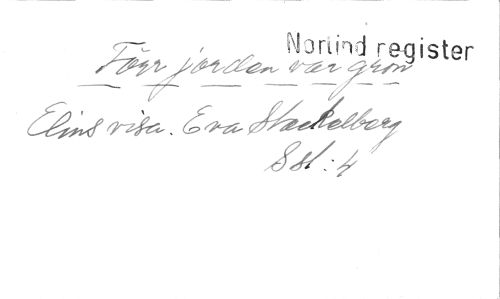 Norlind register
Förr jorden var grön
Elins visa. Eva Stackelberg
S st: 4